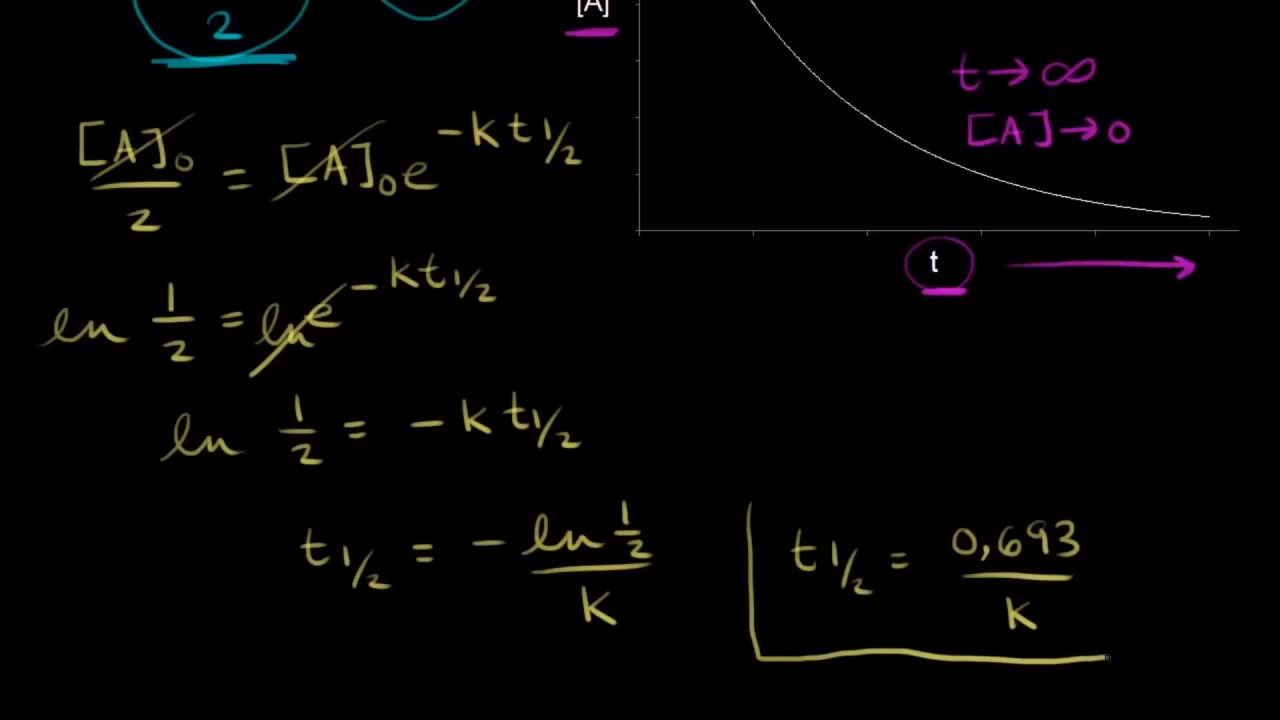 2
[A]
t → ∞
[A] → 0
[A]₀/2 = [A]₀e^(-kt1/2)
t
ln 1/2 = ln e^(-kt1/2)
ln 1/2 = -kt1/2
t1/2 = -ln 1/2 / k
t1/2 = 0,693 / k